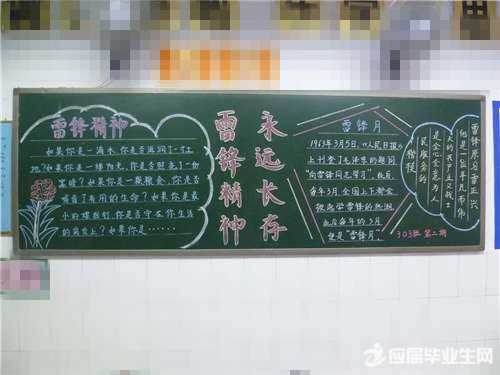 雷锋精神
如果你是一滴水,你是否滋润了一寸土
地?如果你是一缕阳光,你是否照亮了一份
黑暗?如果你是一颗粮食,你是否
哺育了有用的生命?如果你是最
小的螺丝钉,你是否守在你生活
的岗位上?如果你是……
雷锋精神
永远长存
雷锋月
1963年3月5日,《人民日报》
上刊登了毛泽东的题词
"向雷锋同志学习",此后
每年3月全国上下都会
掀起学雷锋的热潮
此后每年的3月
便是"雷锋月"。
303班 第二期
雷锋原名雷正兴
他是一位平凡而伟
大的共产主义战士
是全心全意为人
民服务的
楷模
应届毕业生网